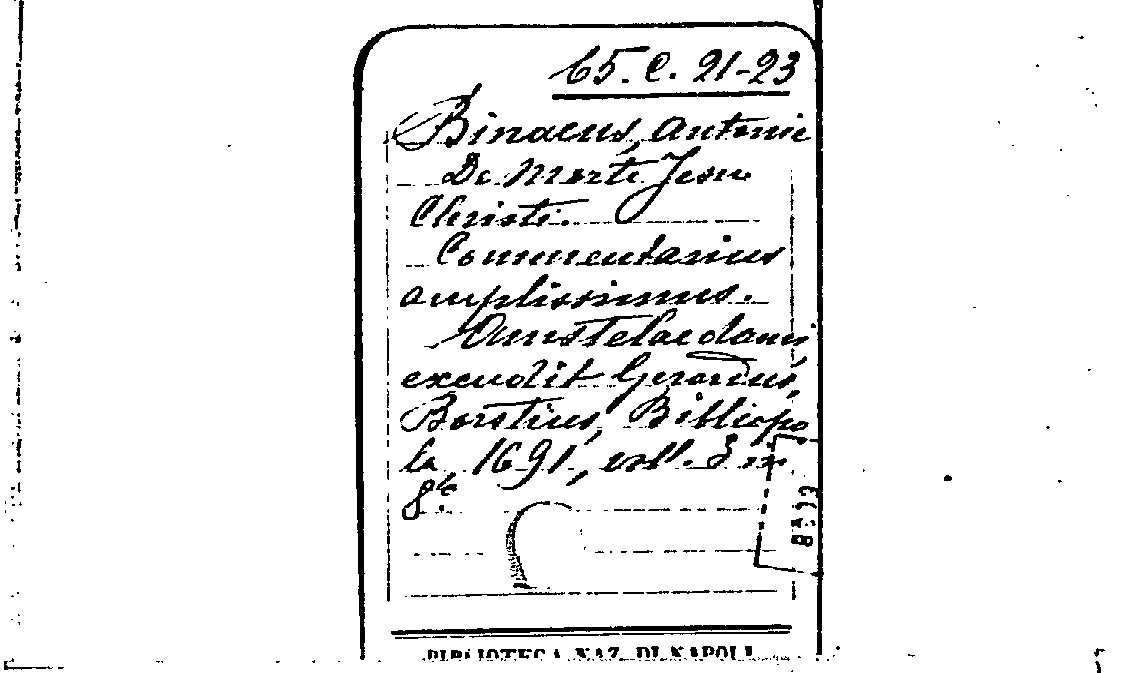 65. C. 21-23
Binaeus, Antonie
De Morte Jesu
Christi.
Commentarius
amplissimus.
Amstelaedami
excudit Gerardus,
Borstius, Bibliopo
la, 1691, voll. 3 in
8º.
BIBLIOTECA NAZ. DI NAPOLI